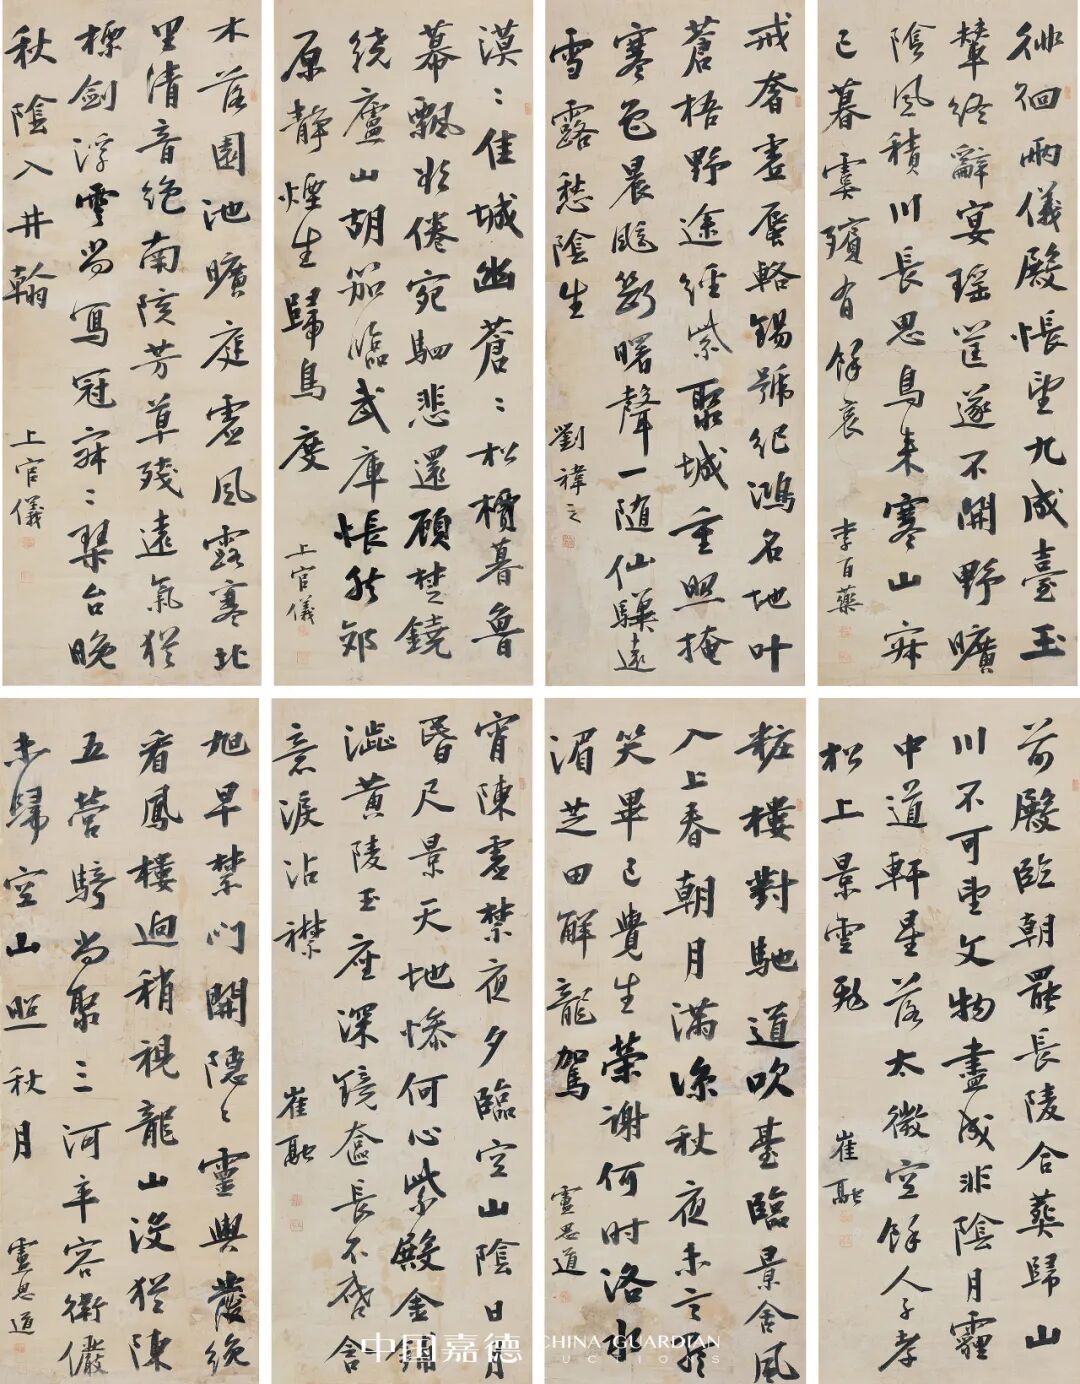 徘徊兩儀殿悵望九成臺玉
輦終辭宴瑤筐遂不開野曠
陰風積川長思鳥来寒山寂
已暮虞殯有餘哀
李百藥
戒奢虛蜃輅錫號紀鴻名地叶
蒼梧野途經紫聚城重照掩
寒色晨飈斷曙聲一随仙驥遠
雪露愁陰生
劉禕之
漠〻佳城幽蒼〻松檟暮魯
幕飄欲倦宛駟悲還顧楚鐃
繞廬山胡笳臨武庫悵然郊
原靜煙生歸鳥度
上官儀
木落園池曠庭虛風露寒北
里清音絕南陔芳草殘遠氣猶
標劍浮雲尚寫冠寂〻琴台晚
秋陰入井榦
上官儀
前殿臨朝罷長陵合葬歸山
川不可望文物盡成非陰月霾
中道軒星落太微空餘人子孝
松上景雲飛
崔融
粧樓對馳道吹臺臨景舍風
入上春朝月滿涼秋夜未言歌
笑畢已覺生榮謝何时洛水
湄芝田解龍駕
盧思道
宵陳虛禁夜夕臨空山陰日月
昏尺景天地慘何心紫殿金鋪
澁黄陵玉座深鏡奩長不啓含
意淚沾襟
崔融
旭早禁門開隱〻靈輿發純
看鳳樓迥稍視龍山没猶陳
五營騎尚聚三河卒容衛儼
未歸空山照秋月
盧思道
中国嘉德 CHINA GUARDIAN
AUCTIONS